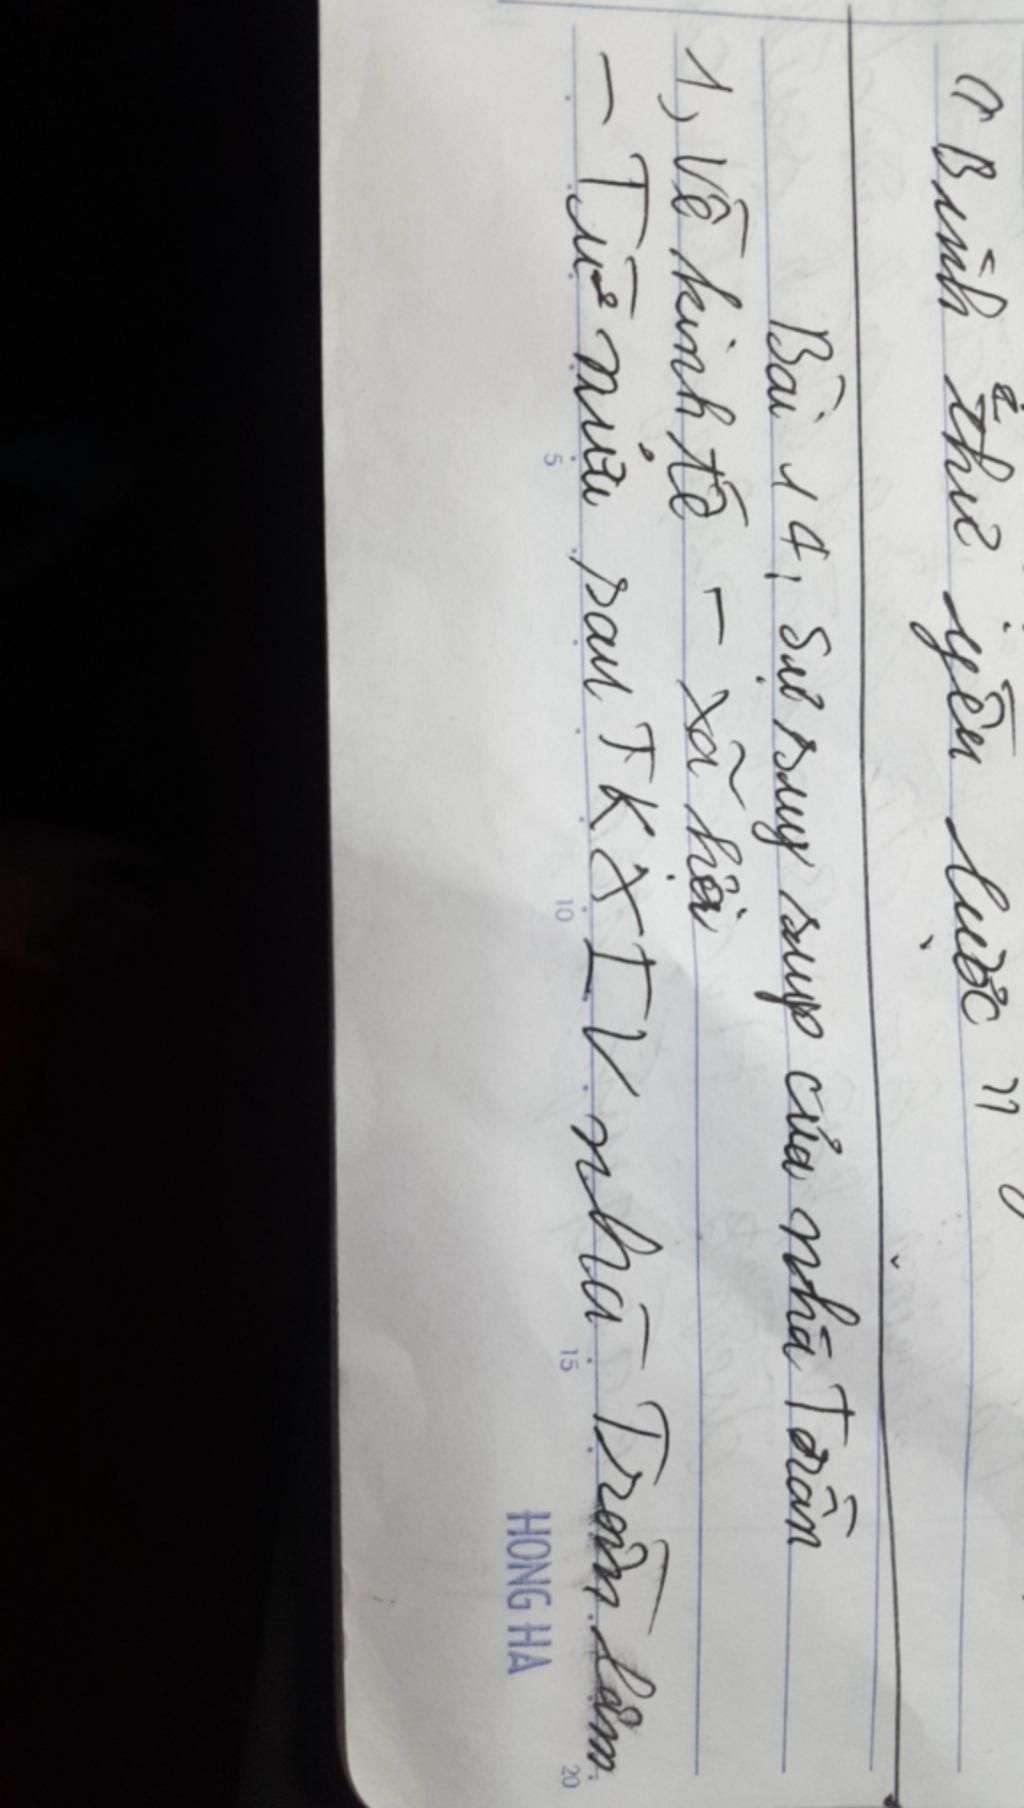 "Binh thư yếu lược"
Bài 14, Sự suy sụp của nhà Trần
1, Về kinh tế - xã hội
- Từ nửa sau TK XIV nhà Trần lâm
5 10 15 20
HONG HA